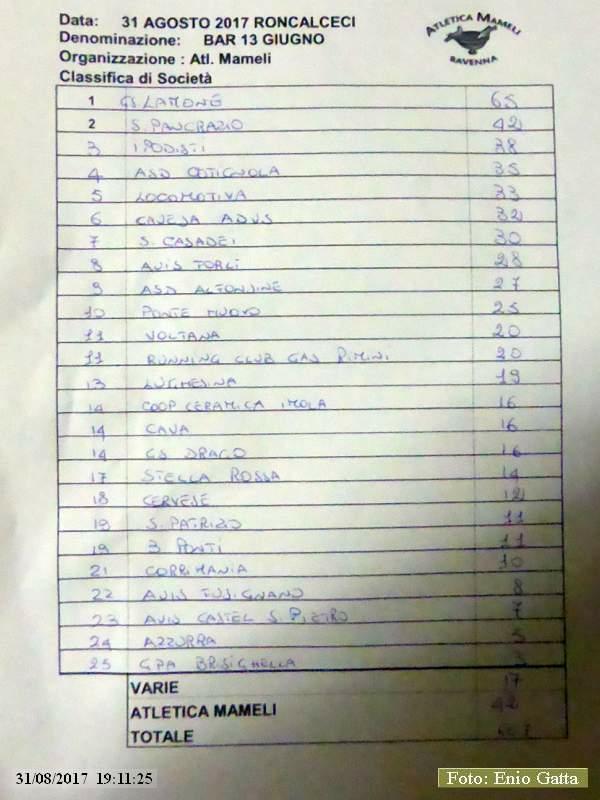 Data: 31 AGOSTO 2017 RONCALCECI
Denominazione: BAR 13 GIUGNO
Organizzazione : Atl. Mameli
Classifica di Società
ATLETICA MAMELI
RAVENNA
1 GS LAMONE 65
2 S. PANCRAZIO 42
3 I PODISTI 38
4 ASD COTIGNOLA 35
5 LOCOMOTIVA 33
6 CAVEJA ADVS 32
7 S. CASADEI 30
8 AVIS FORLI 28
9 ASD ALFONSINE 27
10 PONTE NUOVO 25
11 VOLTANA 20
11 RUNNING CLUB GAS RIMINI 20
13 LUGHESINA 19
14 COOP CERAMICA IMOLA 16
14 CAVA 16
14 GS DRAGO 16
17 STELLA ROSSA 14
18 CERVESE 12
19 S. PATRIZIO 11
19 3 PONTI 11
21 CORRIMANIA 10
22 AVIS TUSIGNANO 8
23 AVIS CASTEL S. PIETRO 7
24 AZZURRA 5
25 GPA BRISIGHELLA 3
VARIE 17
ATLETICA MAMELI 42
TOTALE
31/08/2017 19:11:25
Foto: Enio Gatta